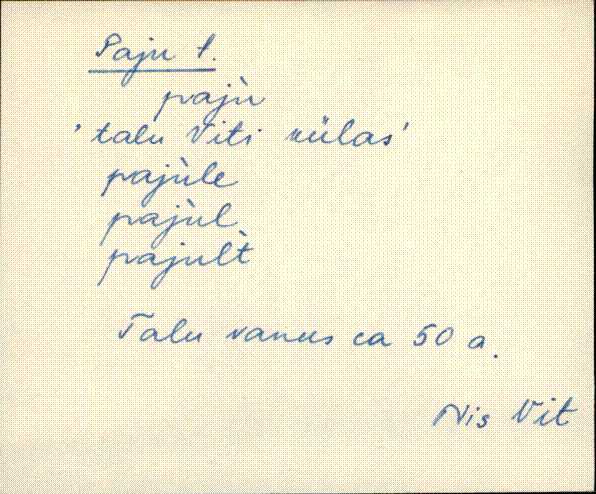 Paju t.
pajù
'talu Viti külas'
pajùle
pajùl
pajult̀
Talu vanus ca 50 a.
Nis Vit